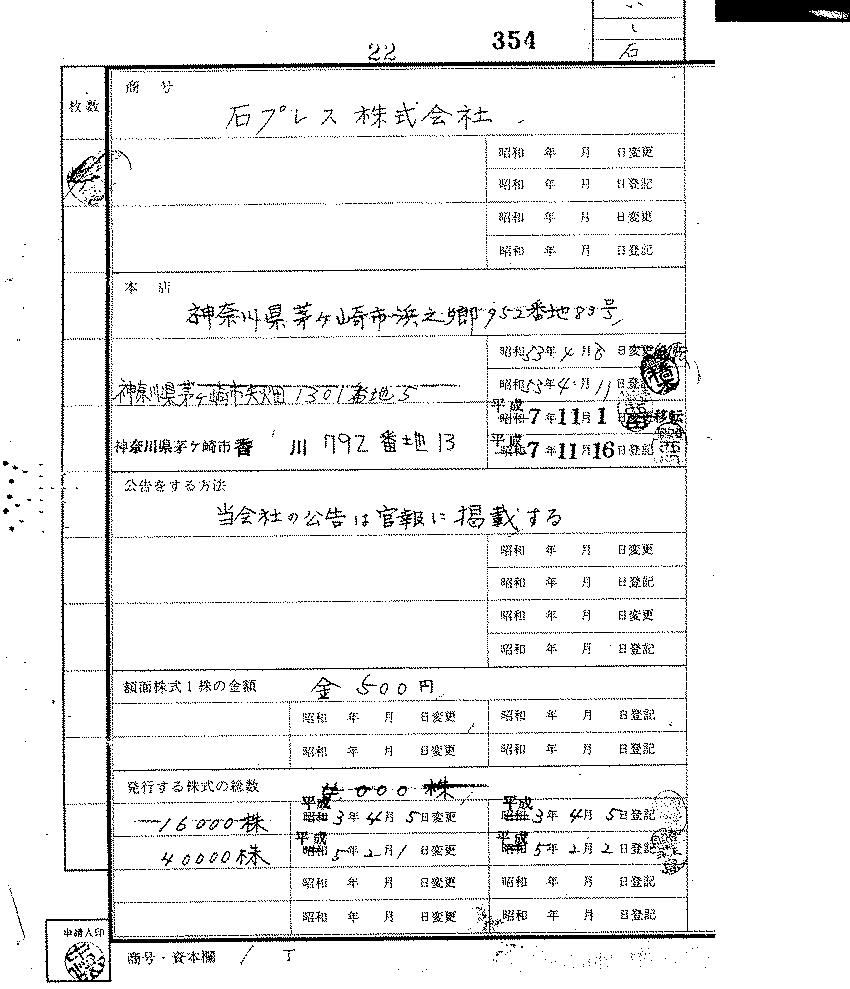 い
し
石
22 354
枚数
商 号
石プレス株式会社
昭和 年 月 日変更
昭和 年 月 日登記
昭和 年 月 日変更
昭和 年 月 日登記
本 店
神奈川県茅ヶ崎市浜之郷952番地83号
昭和53年4月8日変更
神奈川県茅ヶ崎市矢畑1301番地5
昭和53年4月11日登記
平成
昭和7年11月1日移転
神奈川県茅ケ崎市香 川792番地13
平成
昭和7年11月16日登記
公告をする方法
当会社の公告は官報に掲載する
昭和 年 月 日変更
昭和 年 月 日登記
昭和 年 月 日変更
昭和 年 月 日登記
額面株式1株の金額 金500円
昭和 年 月 日変更 昭和 年 月 日登記
昭和 年 月 日変更 昭和 年 月 日登記
発行する株式の総数 000株
平成 平成
16000株 昭和3年4月5日変更 昭和3年4月5日登記
平成 平成
40000株 昭和5年2月1日変更 昭和5年2月2日登記
昭和 年 月 日変更 昭和 年 月 日登記
昭和 年 月 日変更 昭和 年 月 日登記
申請人印
商号・資本欄 1丁